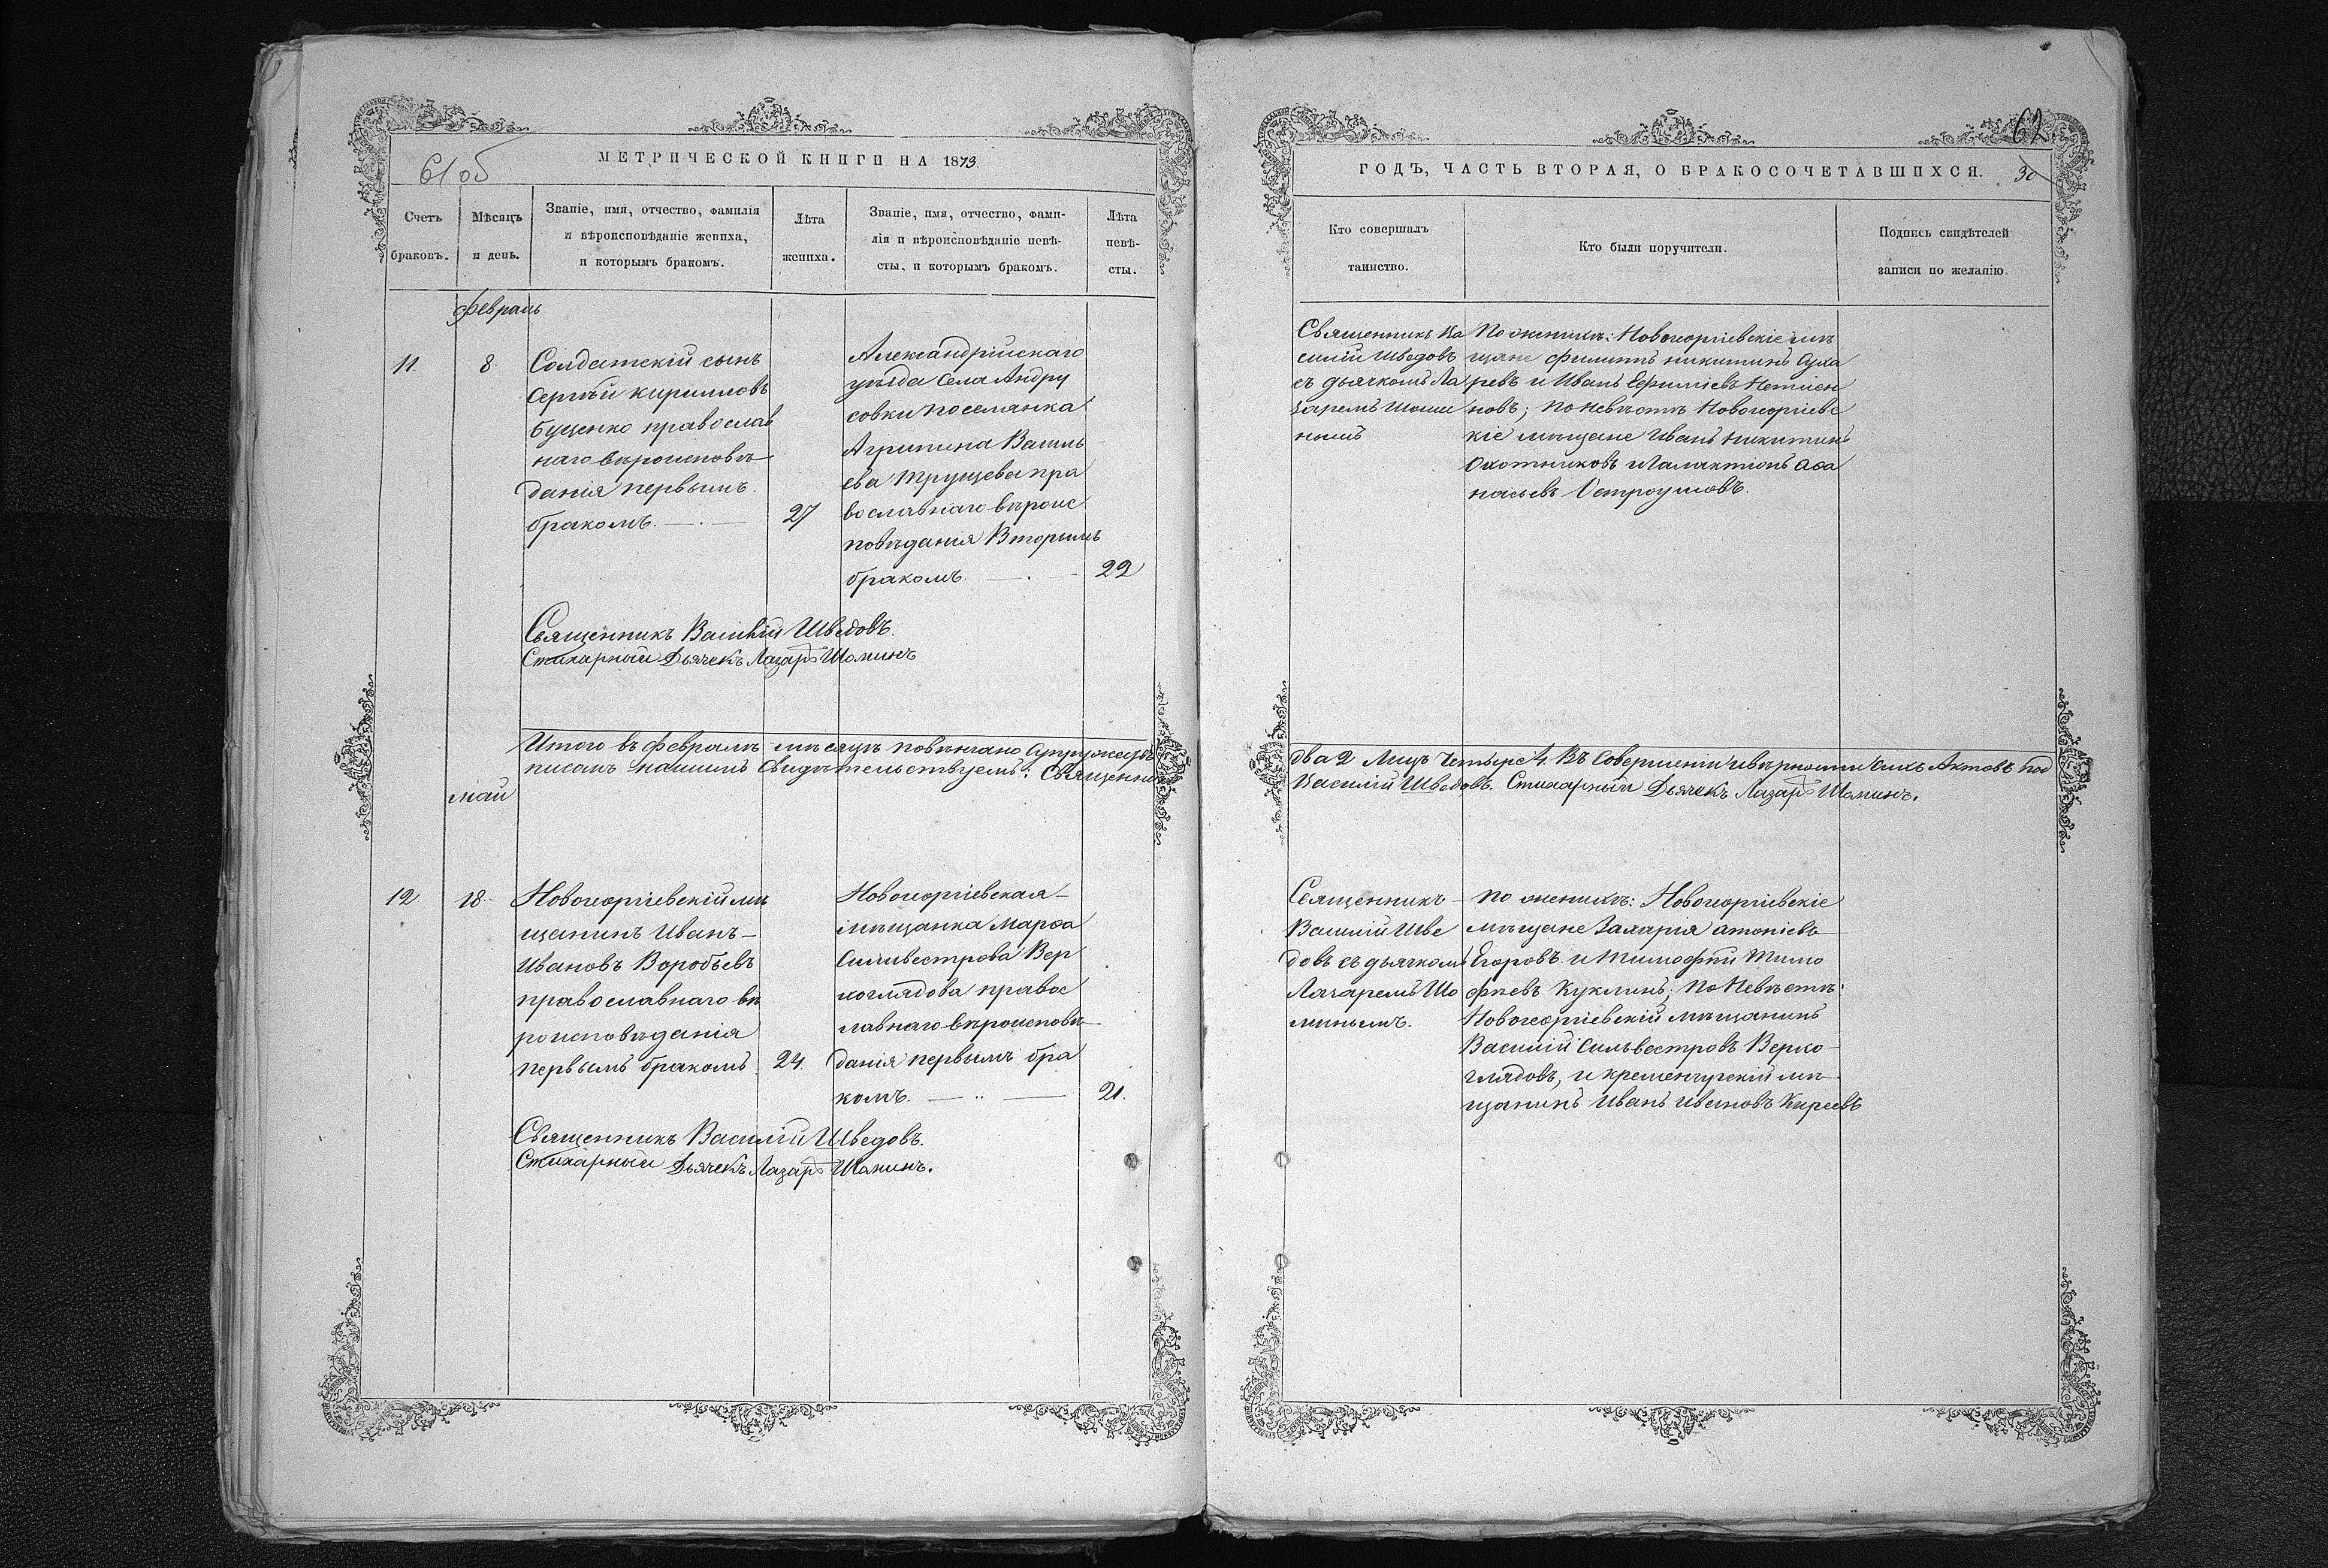 61 об
МЕТРИЧЕСКОЙ КНИГИ НА 1873
Счетъ
браковъ.
Мѣсяцъ
и день.
Званіе, имя, отчество, фамилія
и вѣроисповѣданіе жениха,
и которымъ бракомъ.
Лѣта
жениха.
Званіе, имя, отчество, фами-
лія и вѣроисповѣданіе невѣ-
сты, и которымъ бракомъ.
Лѣта
невѣ-
сты.
Февраль
11.
8.
Солдатскій сынъ
Сергѣй Кирилловъ
Буценко православ
наго вѣроисповѣ
данія первымъ
бракомъ.
27
Александрійскаго
уѣзда села Андру
совки поселянка
Агрипина Василь
ева Трущева пра
вославнаго вѣроис
повѣданія Вторымъ
бракомъ.
22
Священникъ Василій Шведовъ.
Стихарный Дьячекъ Лазарь Шоминъ
Итого въ Февралѣ мѣсяцѣ повѣнчано супружествъ
писомъ нашимъ Свидѣтельствуемъ: Священникъ
май
12
18
Новогеоргіевскій мѣ
щанинъ Иванъ
Ивановъ Воробьевъ
православнаго вѣ
роисповѣданія
первымъ бракомъ
24.
Новогеоргіевская
мѣщанка Марѳа
Сильвестрова Вер
хоглядова правос
лавнаго вѣроисповѣ
данія первымъ бра
комъ.
21.
Священникъ Василій Шведовъ.
Стихарный Дьячекъ Лазарь Шоминъ.
62
ГОДЪ, ЧАСТЬ ВТОРАЯ, О БРАКОСОЧЕТАВШИХСЯ.
30
Кто совершалъ
таинство.
Кто были поручители.
Подпись свидѣтелей
записи по желанію.
Священникъ Ва
силій Шведовъ
съ дьячкомъ Ла
заремъ Шоми
нымъ
По женихѣ: Новогеоргіевскіе мѣ
щане Филиппъ Никитинъ Суха
ревъ и Иванъ Ефиміевъ
новъ; По невѣстѣ Новогеоргіевс
кіе мѣщане Иванъ Никитинъ
Охотниковъ и Галактіонъ Аѳа
насьевъ Остроумовъ.
два 2 Лицъ Четыре 4. Въ Совершеніи и вѣрности сихъ Актовъ под
Василій Шведовъ. Стихарный Дьячекъ Лазарь Шоминъ.
Священникъ
Василій Шве
довъ съ дьячкомъ
Лазаремъ Шо
минымъ.
По женихѣ: Новогеоргіевскіе
мѣщане Захарія
Егоровъ и Тимофѣй Тимо
фѣевъ Куклинъ; По Невѣстѣ:
Новогеоргіевскій мѣщанинъ
Василій Сильвестровъ Верхо-
глядовъ, и Кременчугскій мѣ
щанинъ Иванъ Ивановъ Киреевъ